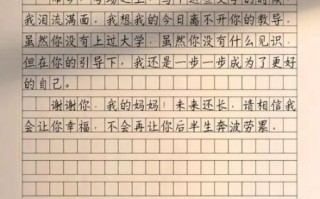 的时候，
我泪流满面。我想我的今日离不开你的教导。
虽然你没有上过大学，虽然你没有什么见识，
但在你的引导下，我还是一步一步成为了更好
的自己。
谢谢你，我的妈妈！未来还长，请相信我
会让你幸福，不会再让你后半生奔波劳累。